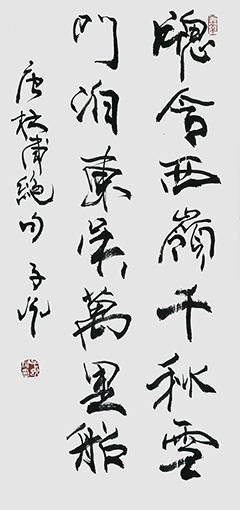 牕含西嶺千秋雪
門泊東吳萬里船
唐杜甫絕句 子